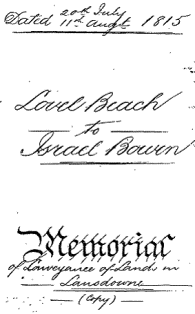 20th July
Dated 11th augt 1815
Lovel Beach
to
Israel Bowen
Memorial
of Conveyance of Lands in
Lansdowne
(Copy)